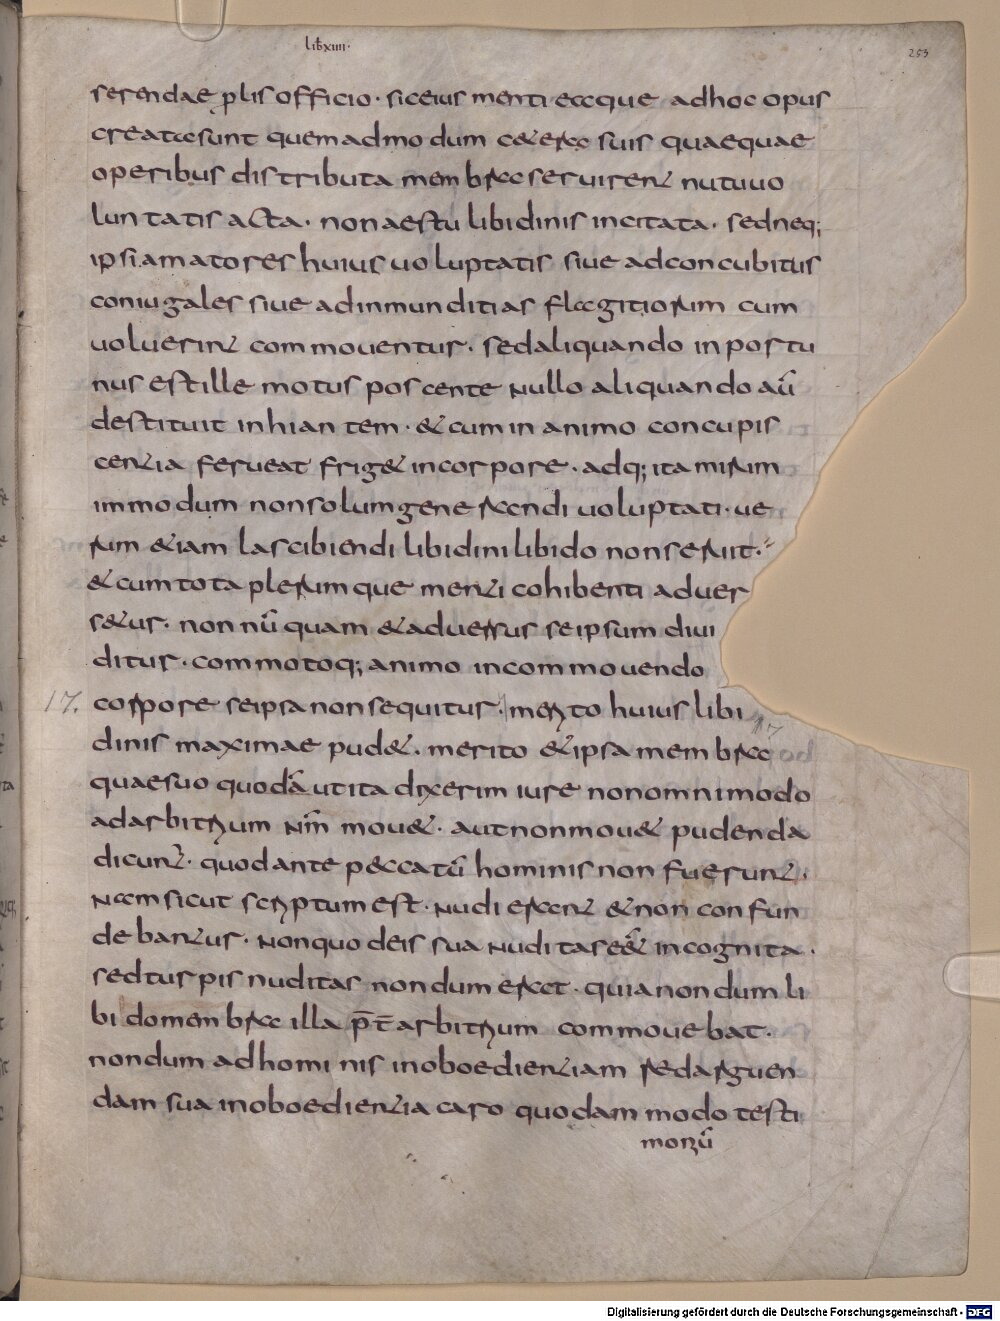 lib xiiii·
253
serendae plis officio · sic eius menti eaque ad hoc opus
creata sunt quemadmodum c&era suis quaequae
operibus distributa membra seruirent nutu uo
luntatis acta · non aestu libidinis incitata · sed neq;
ipsi amatores huius uoluptatis siue ad concubitus
coniugales siue ad inmunditias flagitiorum cum
uoluerint commouentur · sed aliquando inportu
nus est ille motus poscente nullo aliquando aū
destituit inhiantem · & cum in animo concupis
centia ferueat frig& in corpore · adq; ita mirum
immodum non solum generandi uoluptati · ue
rum &iam lascibiendi libidini libido non seruit ·
& cum tota plerumque menti cohibenti aduer
s&ur · non nūquam & aduersus se ipsum diui
ditur · commotoq; animo in commouendo
17. corpore se ipsa non sequitur · merito huius libi
dinis maximae pud& · merito & ipsa membra
quae suo quodā ut ita dixerim iure non omni modo
ad arbitrium nr̄m mou& · aut non mou& pudenda
dicunt̄ · quod ante peccatū hominis non fuerunt ·
nam sicut scriptum est · nudi erant & non confun
debantur · non quod eis sua nuditas eēt incognita ·
sed turpis nuditas nondum erat · quia nondum li
bido membra illa p̄t̄ arbitrium commouebat ·
nondum ad hominis inoboedientiam redarguen
dam sua inoboedientia caro quodam modo testi
moniū
Digitalisierung gefördert durch die Deutsche Forschungsgemeinschaft - DFG